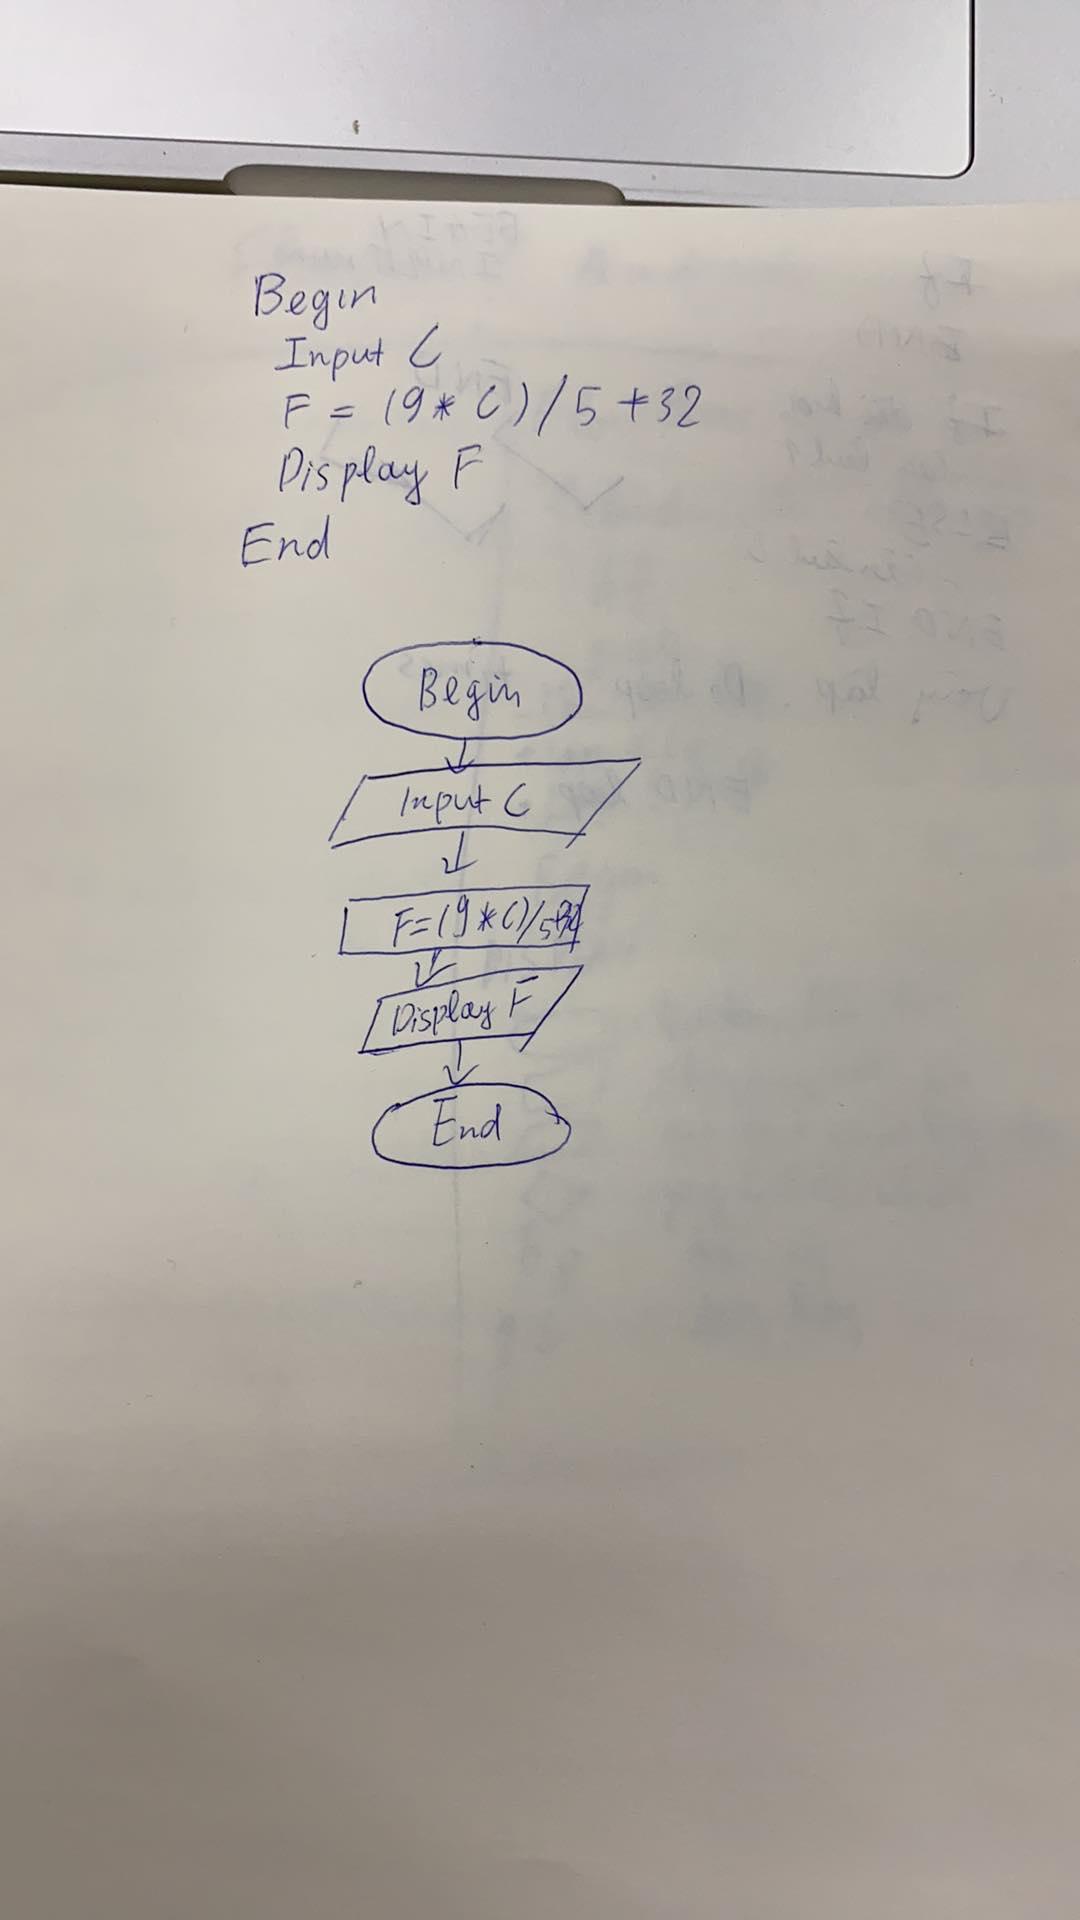 Begin
Input C
F = (9 * C) / 5 + 32
Display F
End
Begin
Input C
F = (9 * C) / 5+32
Display F
End